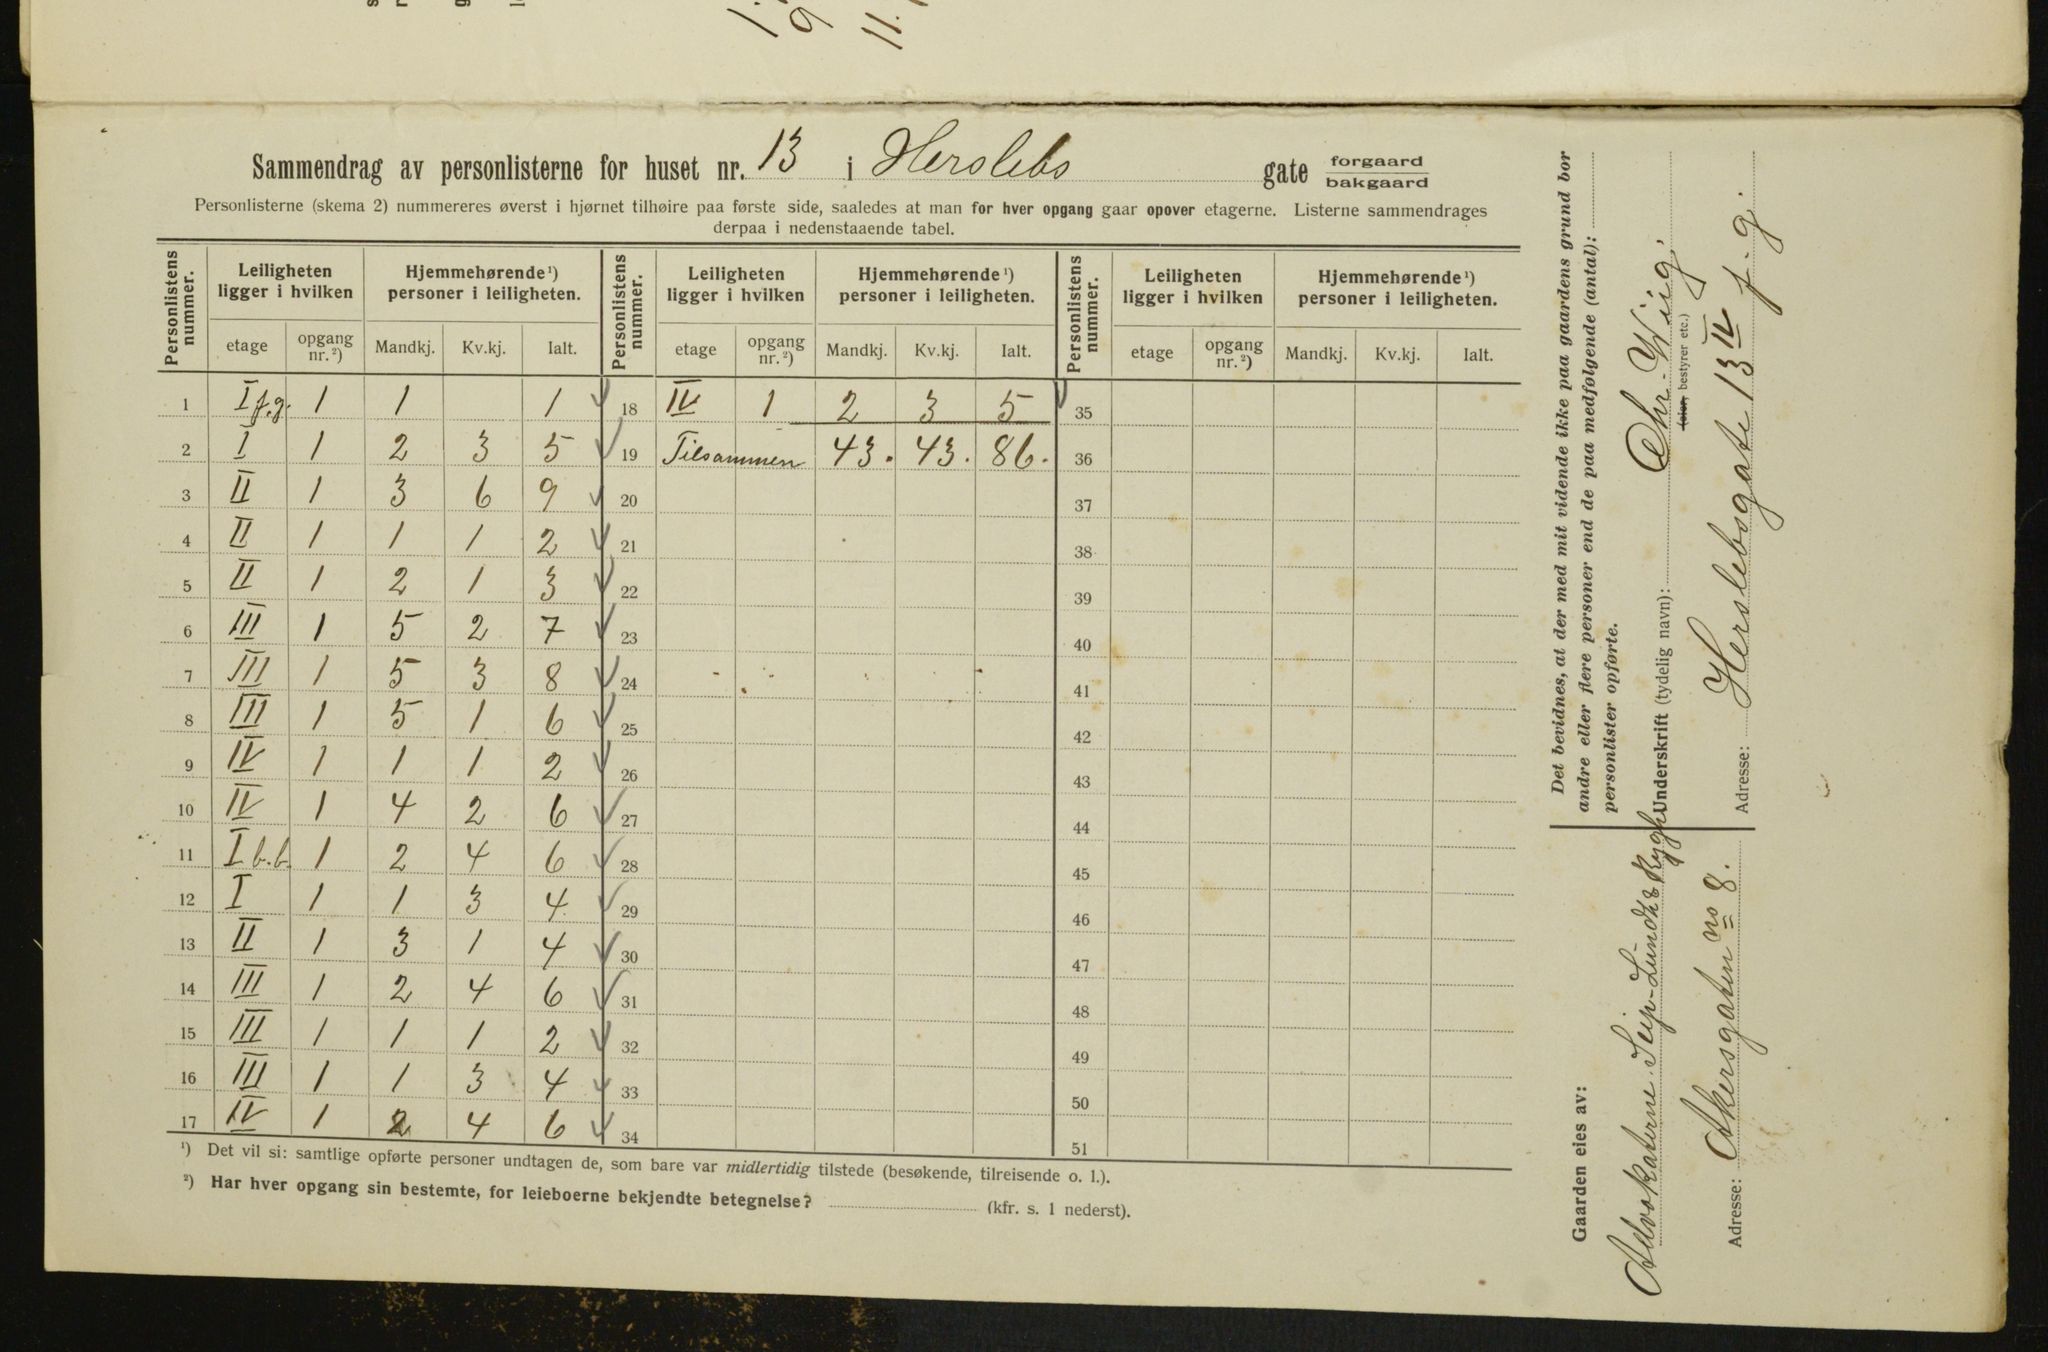 Sammendrag av personlisterne for huset nr. 13 i Herslebs gate forgaard
bakgaard
Personlisterne (skema 2) nummereres øverst i hjørnet tilhøire paa første side, saaledes at man for hver opgang gaar opover etagerne. Listerne sammendrages
derpaa i nedenstaaende tabel.
Personlistens nummer. Leiligheten ligger i hvilken Hjemmehørende ¹) personer i leiligheten. Personlistens nummer. Leiligheten ligger i hvilken Hjemmehørende ¹) personer i leiligheten. Personlistens nummer. Leiligheten ligger i hvilken Hjemmehørende ¹) personer i leiligheten.
etage opgang nr. ²) Mandkj. Kv.kj. Ialt. etage opgang nr. ²) Mandkj. Kv.kj. Ialt. etage opgang nr. ²) Mandkj. Kv.kj. Ialt.
1 I f.g. 1 1 1 18 IV 1 2 3 5 35
2 I 1 2 3 5 19 Tilsammen 43. 43. 86. 36
3 II 1 3 6 9 20 37
4 II 1 1 1 2 21 38
5 II 1 2 1 3 22 39
6 III 1 5 2 7 23 40
7 III 1 5 3 8 24 41
8 III 1 5 1 6 25 42
9 IV 1 1 1 2 26 43
10 IV 1 4 2 6 27 44
11 I b.b. 1 2 4 6 28 45
12 I 1 1 3 4 29 46
13 II 1 3 1 4 30 47
14 III 1 2 4 6 31 48
15 III 1 1 1 2 32 49
16 III 1 1 3 4 33 50
17 IV 1 2 4 6 34 51
¹) Det vil si: samtlige opførte personer undtagen de, som bare var midlertidig tilstede (besøkende, tilreisende o. l.).
²) Har hver opgang sin bestemte, for leieboerne bekjendte betegnelse? (kfr. s. 1 nederst).
Det bevidnes, at der med mit vidende ikke paa gaardens grund bor
andre eller flere personer end de paa medfølgende (antal):
personlister opførte.
Underskrift (tydelig navn): Chr. Wiig.
(eier, bestyrer etc.)
Adresse: Herslebsgate 13 IV f. g.
Gaarden eies av:
Advokaterne Seip-Lundh & Rygh
Adresse: Akersgaten no 8.